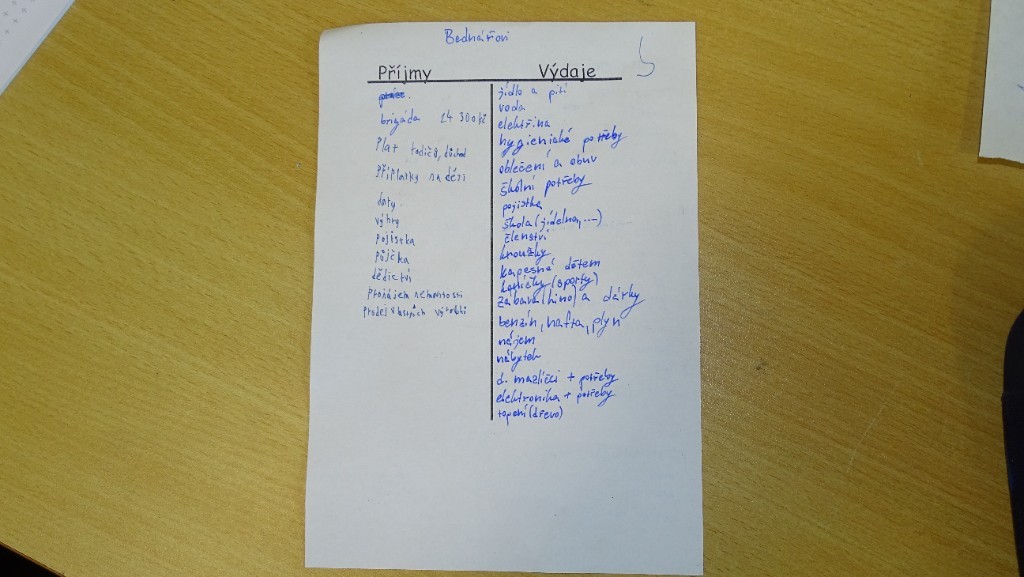 Bednářovi
Příjmy Výdaje
brigáda 14 300 Kč
Plat rodičů, důchod
Příplatky na děti
daty
výhry
pojistka
půjčka
dědictví
Pronájem nemovitosti
Prodej vlastních výrobků
jídlo a pití
voda
elektřina
hygienické potřeby
oblečení a obuv
školní potřeby
pojistka
škola (jídelna, ...)
členství
kroužky
kapesné dětem
koníčky (sporty)
zábava (kino) a dárky
benzín, nafta, plyn
nájem
nábytek
d. mazlíčci + potřeby
elektronika + potřeby
topení (dřevo)